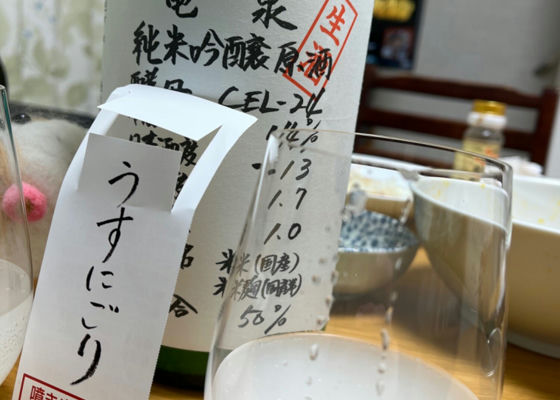 亀泉
生酒
純米吟醸原酒
酵母 CEL-24
14%
日本酒度 -13
酸度 1.7
1.0
米(国産)
米麹(国産)
合 50%
うすにごり